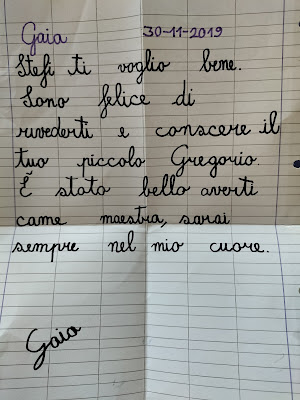 Gaia 30-11-2019
Stefi ti voglio bene.
Sono felice di
rivederti e conscere il
tuo piccolo Gregorio.
È stato bello averti
came maestra, sarai
sempre nel mio cuore.
Gaia